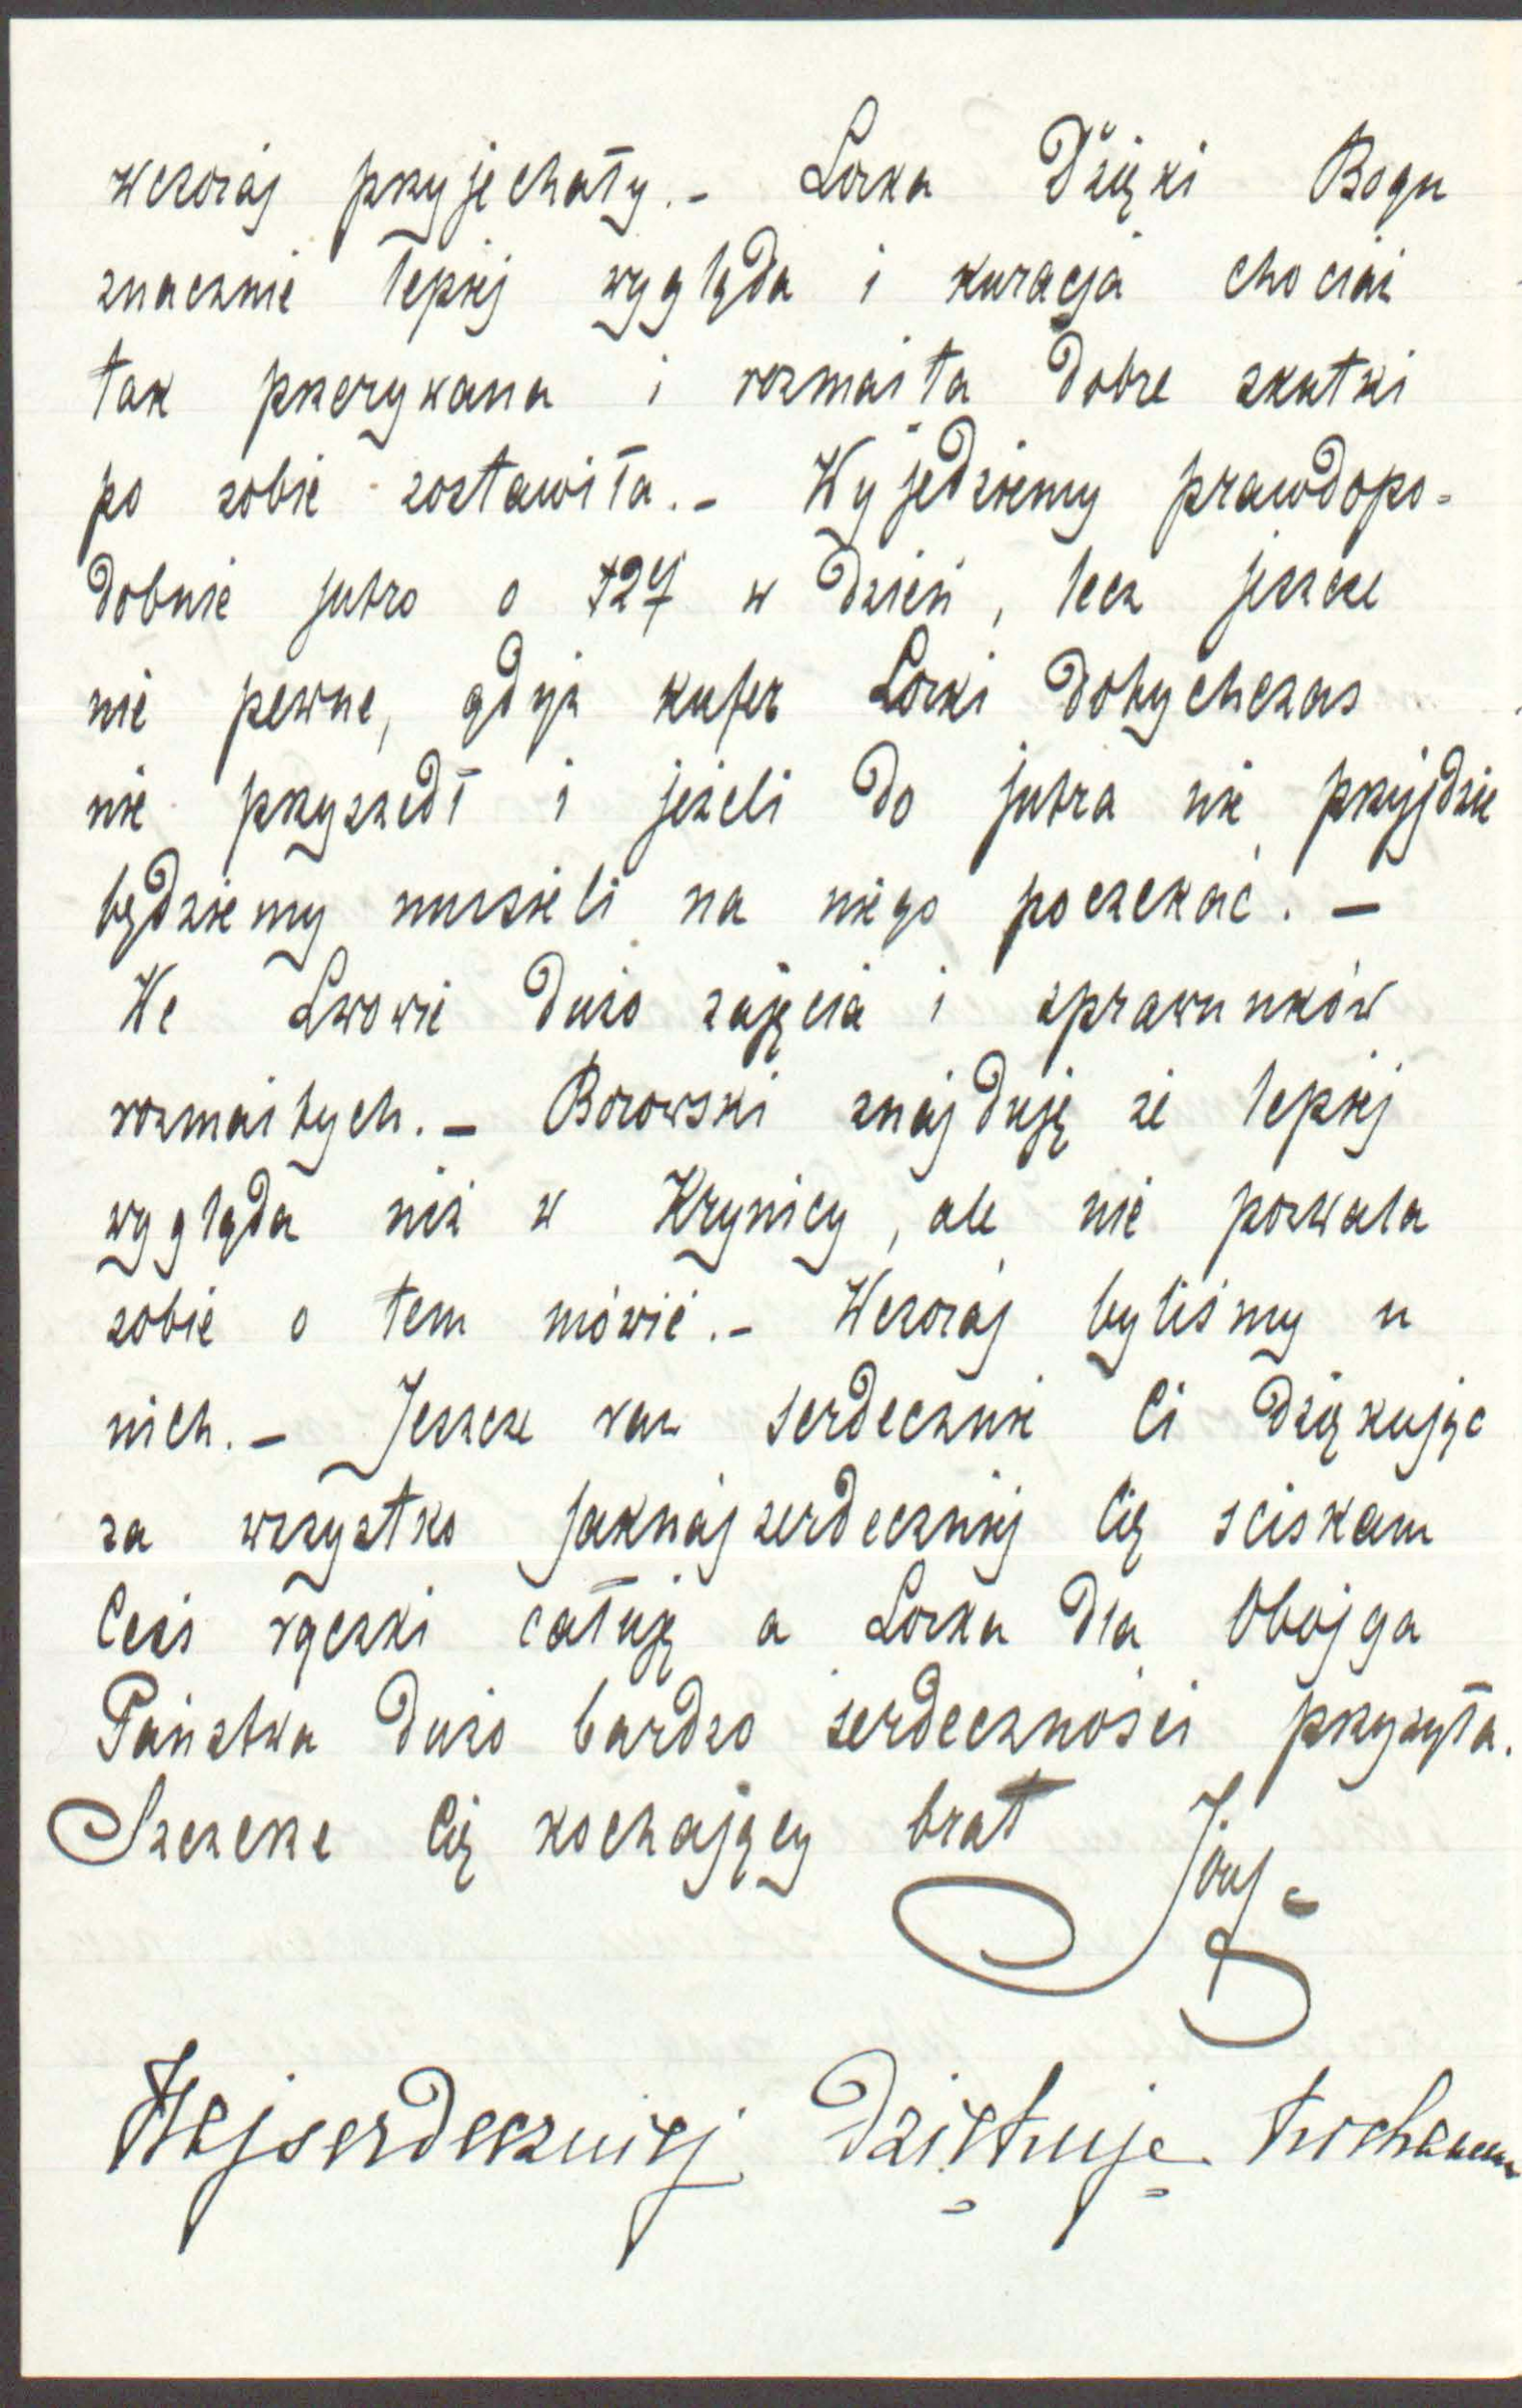 wczoraj przyjechały.- Lorka Dzięki Bogu
znacznie lepiej wygląda i kuracja chociaż
tak przerywana i rozmaita dobre skutki
po sobie zostawiła.- Wyjedziemy prawdopo=
dobnie jutro o w dzień, lecz jeszcze
nie pewne, gdyż kufer Lorki dotychczas
nie przyszedł i jeżeli do jutra nie przyjdzie
będziemy musieli na niego poczekać. -
We Lwowie dużo zajęcia i sprawunków
rozmaitych.- Borowski znajduję że lepiej
wygląda niż w Krynicy, ale nie pozwala
sobie o tem mówić.- Wczoraj byliśmy u
nich.- Jeszcze raz serdecznie Ci dziękując
za wszystko jaknajserdeczniej Cię sciskam
Cesi rączki całuję a Lorka dla Obojga
Państwa dużo bardzo serdeczności przysyła.
Szczerze Cię kochający brat Józef
Najserdeczniej dziękuję